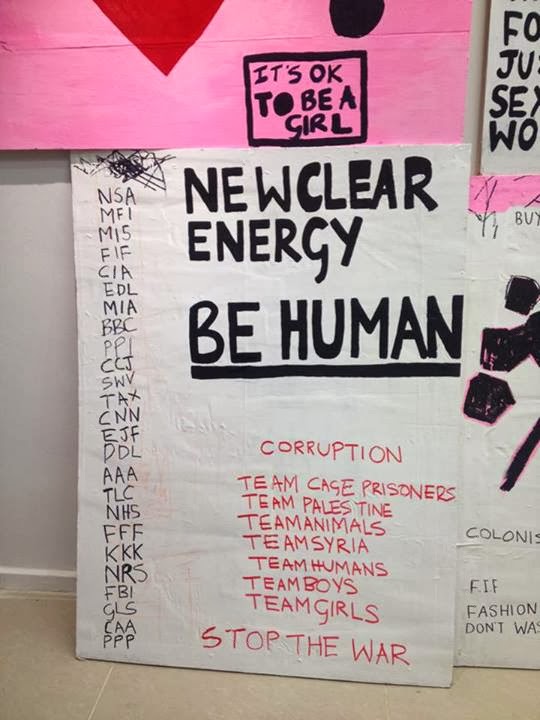 IT'S OK
TO BE A
GIRL
FO
JU
SEX
WO
NEWCLEAR
ENERGY
BE HUMAN
NSA
MFI
MI5
FIF
CIA
EDL
MIA
BBC
PPI
CCJ
SWV
TAX
CNN
EJF
DDL
AAA
TLC
NHS
FFF
KKK
NRS
FBI
GLS
CAA
PPP
CORRUPTION
TEAM CAGE PRISONERS
TEAM PALESTINE
TEAMANIMALS
TEAMSYRIA
TEAMHUMANS
TEAMBOYS
TEAMGIRLS
STOP THE WAR
BUY
COLONIS
F.I.F
FASHION
DON'T WAS